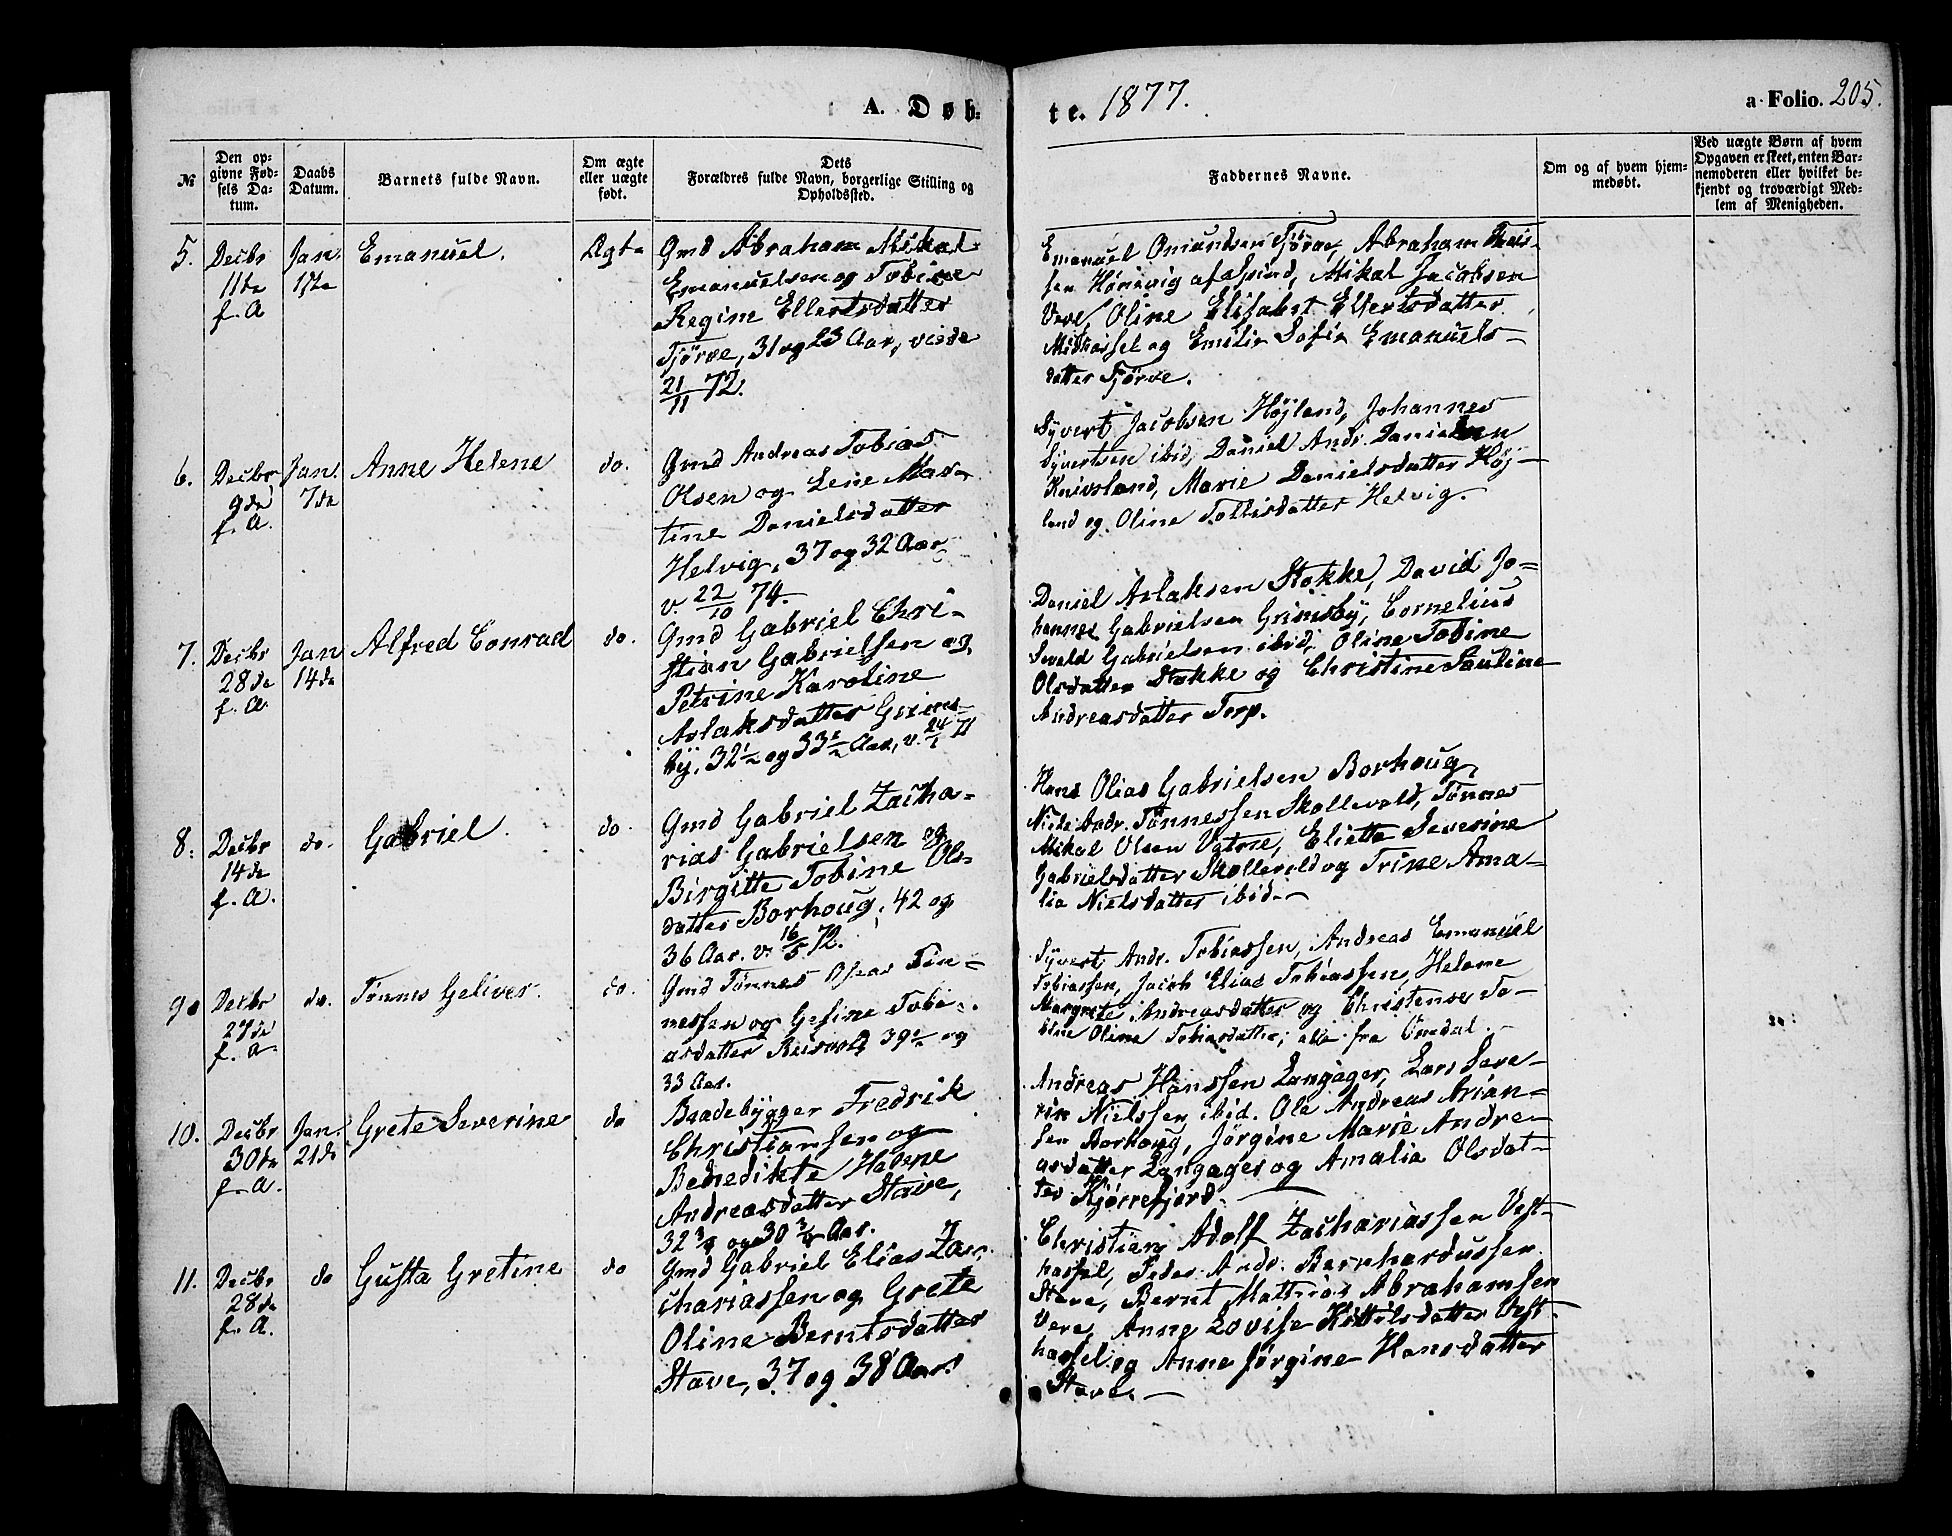 A. Døb-
te. 1877.
a. Folio. 205.
№
Den op-
givne Fød-
sels Da-
tum.
Daabs
Datum.
Barnets fulde Navn.
Om ægte
eller uægte
født.
Dets
Forældres fulde Navn, borgerlige Stilling og
Opholdssted.
Faddernes Navne.
Om og af hvem hjem-
medøbt.
Ved uægte Børn af hvem
Opgaven er skeet, enten Bar-
nemoderen eller hvilket be-
kjendt og troværdigt Med-
lem af Menigheden.
5.
Decbr
11te
f. A
Jan.
Emanuel.
Ægte
Gmd Abraham Mikal
Emanuelsen og Tobine
Regine Ellertsdatter
Tjørve, 31 og 23 Aar, viede
21/11 72.
Emanuel Omundsen Tjørve, Abraham
sen af Spind, Mikal Jacobsen
Vere, Oline Elisabet Ellertsdatter
Midhassel og Emilie Sofie Emanuels-
datter Tjørve.
6.
Decbr
9de
f. A.
Jan.
7de
Anne Helene
do.
Gmd Andreas Tobias
Olsen og Lene Mar-
tine Danielsdatter
Helvig, 37 og 32 Aar
v. 22/10 74.
Syvert Jacobsen Højland, Johannes
Syvertsen ibid, Daniel Andr. Danielsen
Knivsland, Marie Danielsdatter Høj-
land og Oline Tollisdatter Helvig.
7.
Decbr
28de
f. A
Jan
14de
Alfred Conrad
do.
Gmd Gabriel Chri-
stian Gabrielsen og
Petrine Karoline
Aslaksdatter Grims-
by, 32½ og 33½ Aar, v. 24/1 71
Daniel Aslaksen Stokke, David Jo-
hannes Gabrielsen Grimsby, Cornelius
Sevald Gabrielsen ibid, Oline Tobine
Olsdatter Stokke og Christine Pauline
Andreasdatter Torp.
8.
Decbr
14de
f. A.
do.
Gabriel.
do.
Gmd Gabriel Zacha-
rias Gabrielsen og
Birgitte Tobine Ols-
datter Borhoug, 42 og
36 Aar. v. 16/5 72.
Hans Olias Gabrielsen Borhoug,
Niels Andr. Tønnessen Skollevold, Tønnes
Mikal Olsen Vatne, Eliette Severine
Gabrielsdatter Skollevold og Trine Ama-
lia Nielsdatter ibid.
9.
Decbr
27de
f. A.
do.
Tønnes Geliver.
do.
Gmd Tønnes Oseas Tøn-
nessen og Gesine Tobi-
asdatter 39½ og
33 Aar.
Syvert Andr. Tobiassen, Andreas Emanuel
Tobiassen, Jacob Elias Tobiassen, Helene
Margrete Andreasdatter og Christense To-
bine Oline Tobiasdatter, alle fra Omdal.
10.
Decbr
30te
f. A.
Jan.
21de
Grete Severine
do
Baadebygger Fredrik
Christiansen og
Benedikte Helene
Andreasdatter Stave,
32¾ og 30¾ Aar.
Andreas Hanssen Langager, Lars Seve-
rin Nielssen ibid. Ole Andreas Arian-
sen Borhoug, Jørgine Marie Andre-
asdatter Langager og Amalia Olsdat-
ter Kjørrefjord.
11.
Decbr
28de
f. A.
do
Gusta Gretine
do
Gmd Gabriel Elias Za-
chariassen og Grete
Oline Berntsdatter
Stave, 37 og 38 Aar.
Christian Adolf Zachariassen Vest-
hassel, Peder Andr. Bernhardussen
Stave, Bernt Mathias Abrahamsen
Vere, Anne Lovise Kittilsdatter Vest-
hassel og Anne Jørgine Hansdatter
Stave.